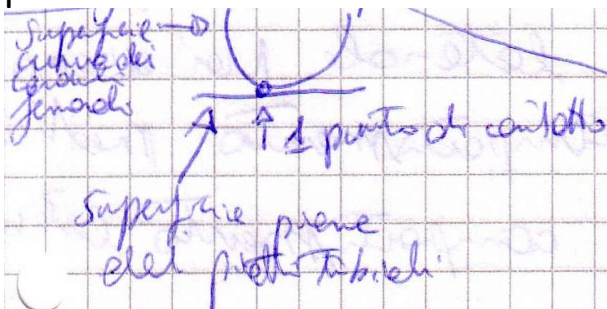 Superficie
curva dei
condili
femorali
1 punto di contatto
Superficie piana
del piatto tibiali